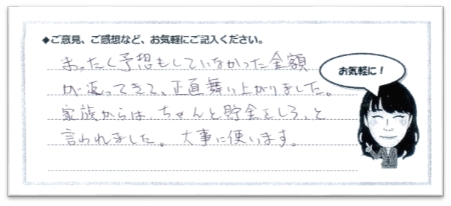 ◆ご意見、ご感想など、お気軽にご記入ください。
まったく予想もしていなかった金額
が返ってきて、正直舞い上がりました。
家族からは、ちゃんと貯金をしろ、と
言われました。大事に使います。
お気軽に!